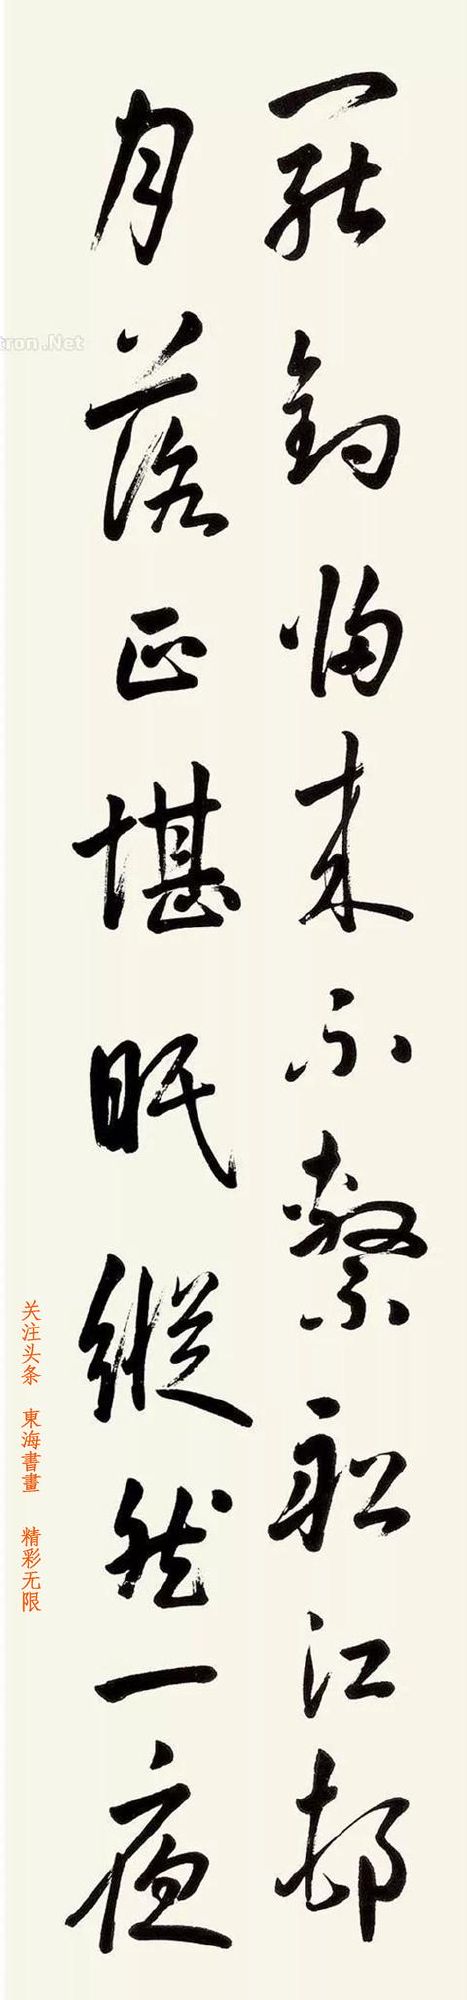 罷釣歸來不繫船江邨
月落正堪眠縱然一夜
关注头条 東海書畫 精彩无限
tron.Net